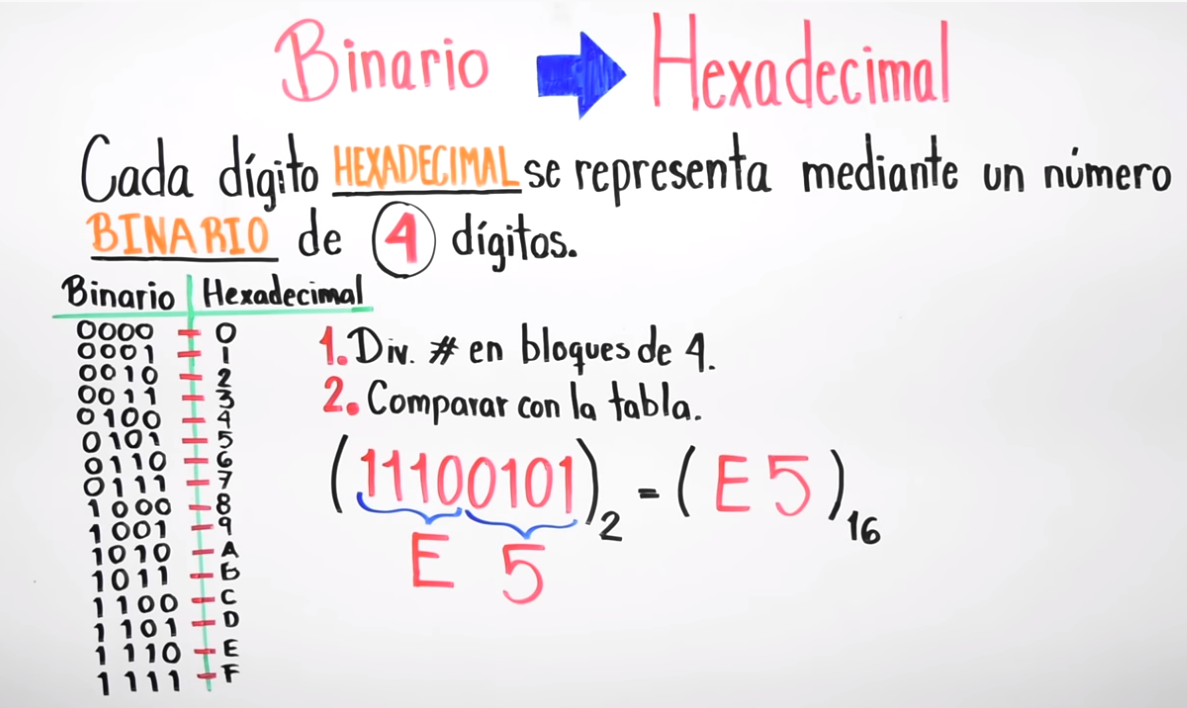 Binario Hexadecimal
Cada dígito HEXADECIMAL se representa mediante un número
BINARIO de 4 dígitos.
Binario Hexadecimal
0000 - 0
0001 - 1
0010 - 2
0011 - 3
0100 - 4
0101 - 5
0110 - 6
0111 - 7
1000 - 8
1001 - 9
1010 - A
1011 - B
1100 - C
1101 - D
1110 - E
1111 - F
1. Div. # en bloques de 4.
2. Comparar con la tabla.
(11100101)2 - (E5)16
E 5